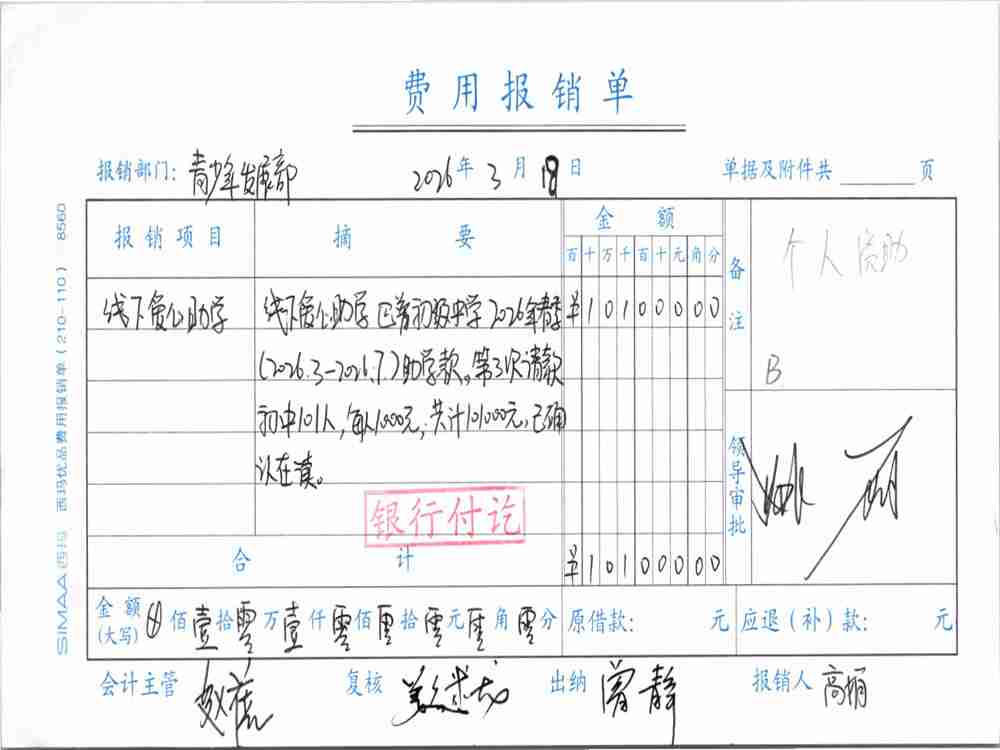 费用报销单
报销部门：青少年发展部 2026年3月18日 单据及附件共 页
报销项目 摘要 金额 备注 个人资助
百十万千百十元角分
线下爱心助学 线下爱心助学 初级中学2026年春季 10100000
(2026.3-2026.7)助学款。第3次请款
B
初中101人，每人1000元，共计101000元，已确
认在读。
领导审批
银行付讫
合计 10100000
金额(大写) 佰壹拾零万壹仟零佰零拾零元零角零分 原借款： 元 应退（补）款： 元
会计主管 复核 出纳 曾静 报销人 高丽
SIMAA 西玛 西玛优品费用报销单(210-110) 8560